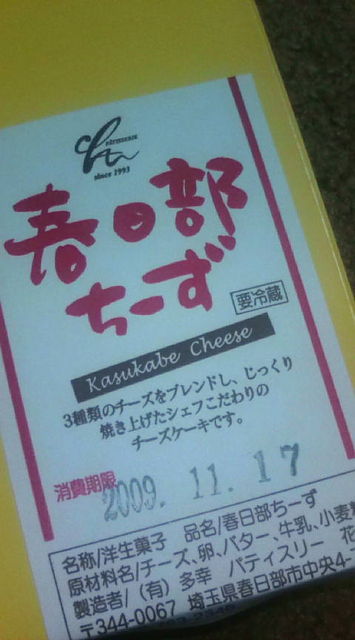 since 1993
春日部
ちーず
要冷蔵
Kasukabe Cheese
3種類のチーズをブレンドし、じっくり
焼き上げたシェフこだわりの
チーズケーキです。
消費期限 2009. 11. 17
名称/洋生菓子 品名/春日部ちーず
原材料名/チーズ、卵、バター、牛乳、小麦粉
製造者/(有)多幸 パティスリー 花
〒344-0067 埼玉県春日部市中央4-